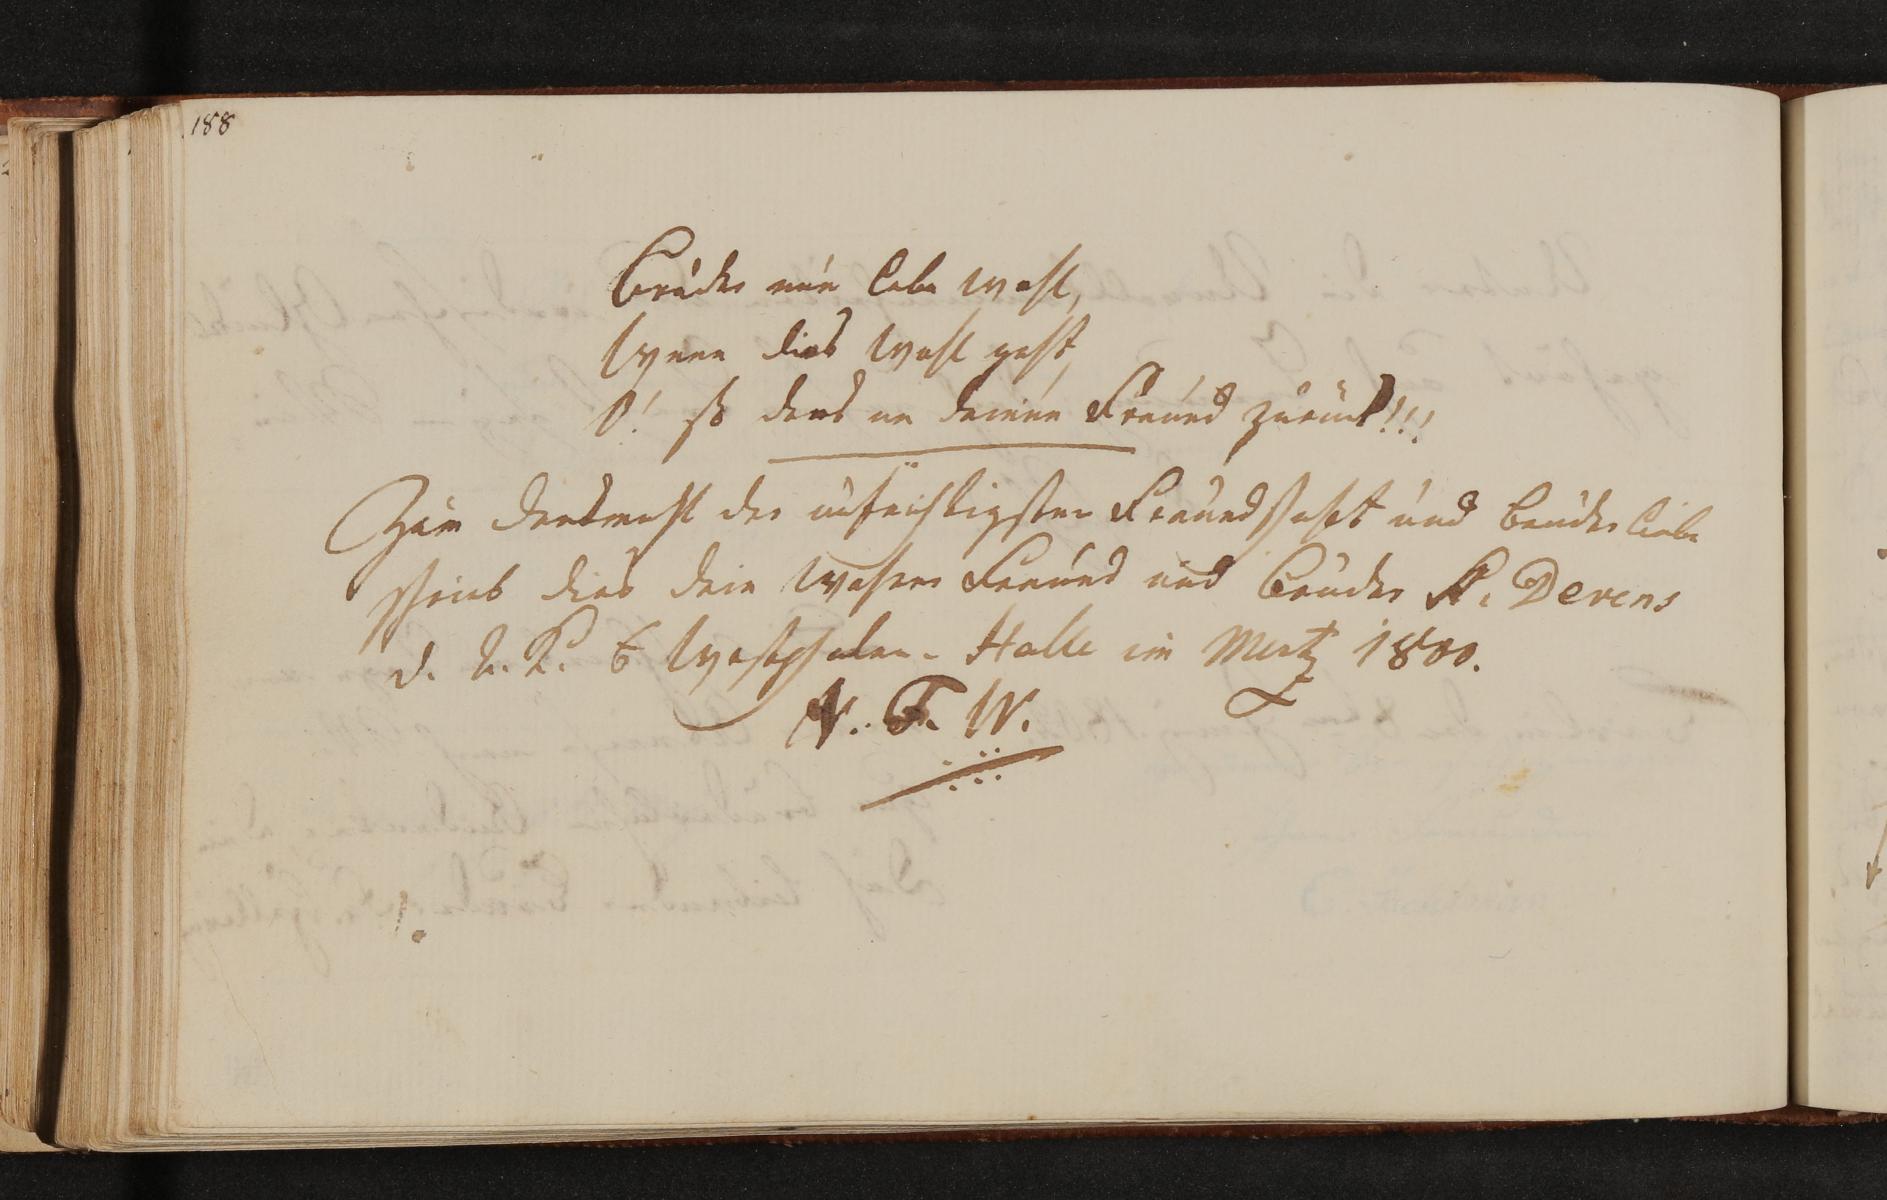 188
Bruder nun lebe wohl,
Wenn dies wohl geht,
O! so denk an deinen Freund zurück!!!
Zum Denkmahl der aufrichtigsten Freundschaft und Bruderliebe
schrieb dies dein wahrer Freund und Bruder A. Devens
d. R. B. G Westphalen. Halle im Mertz 1800.
V. F. W.